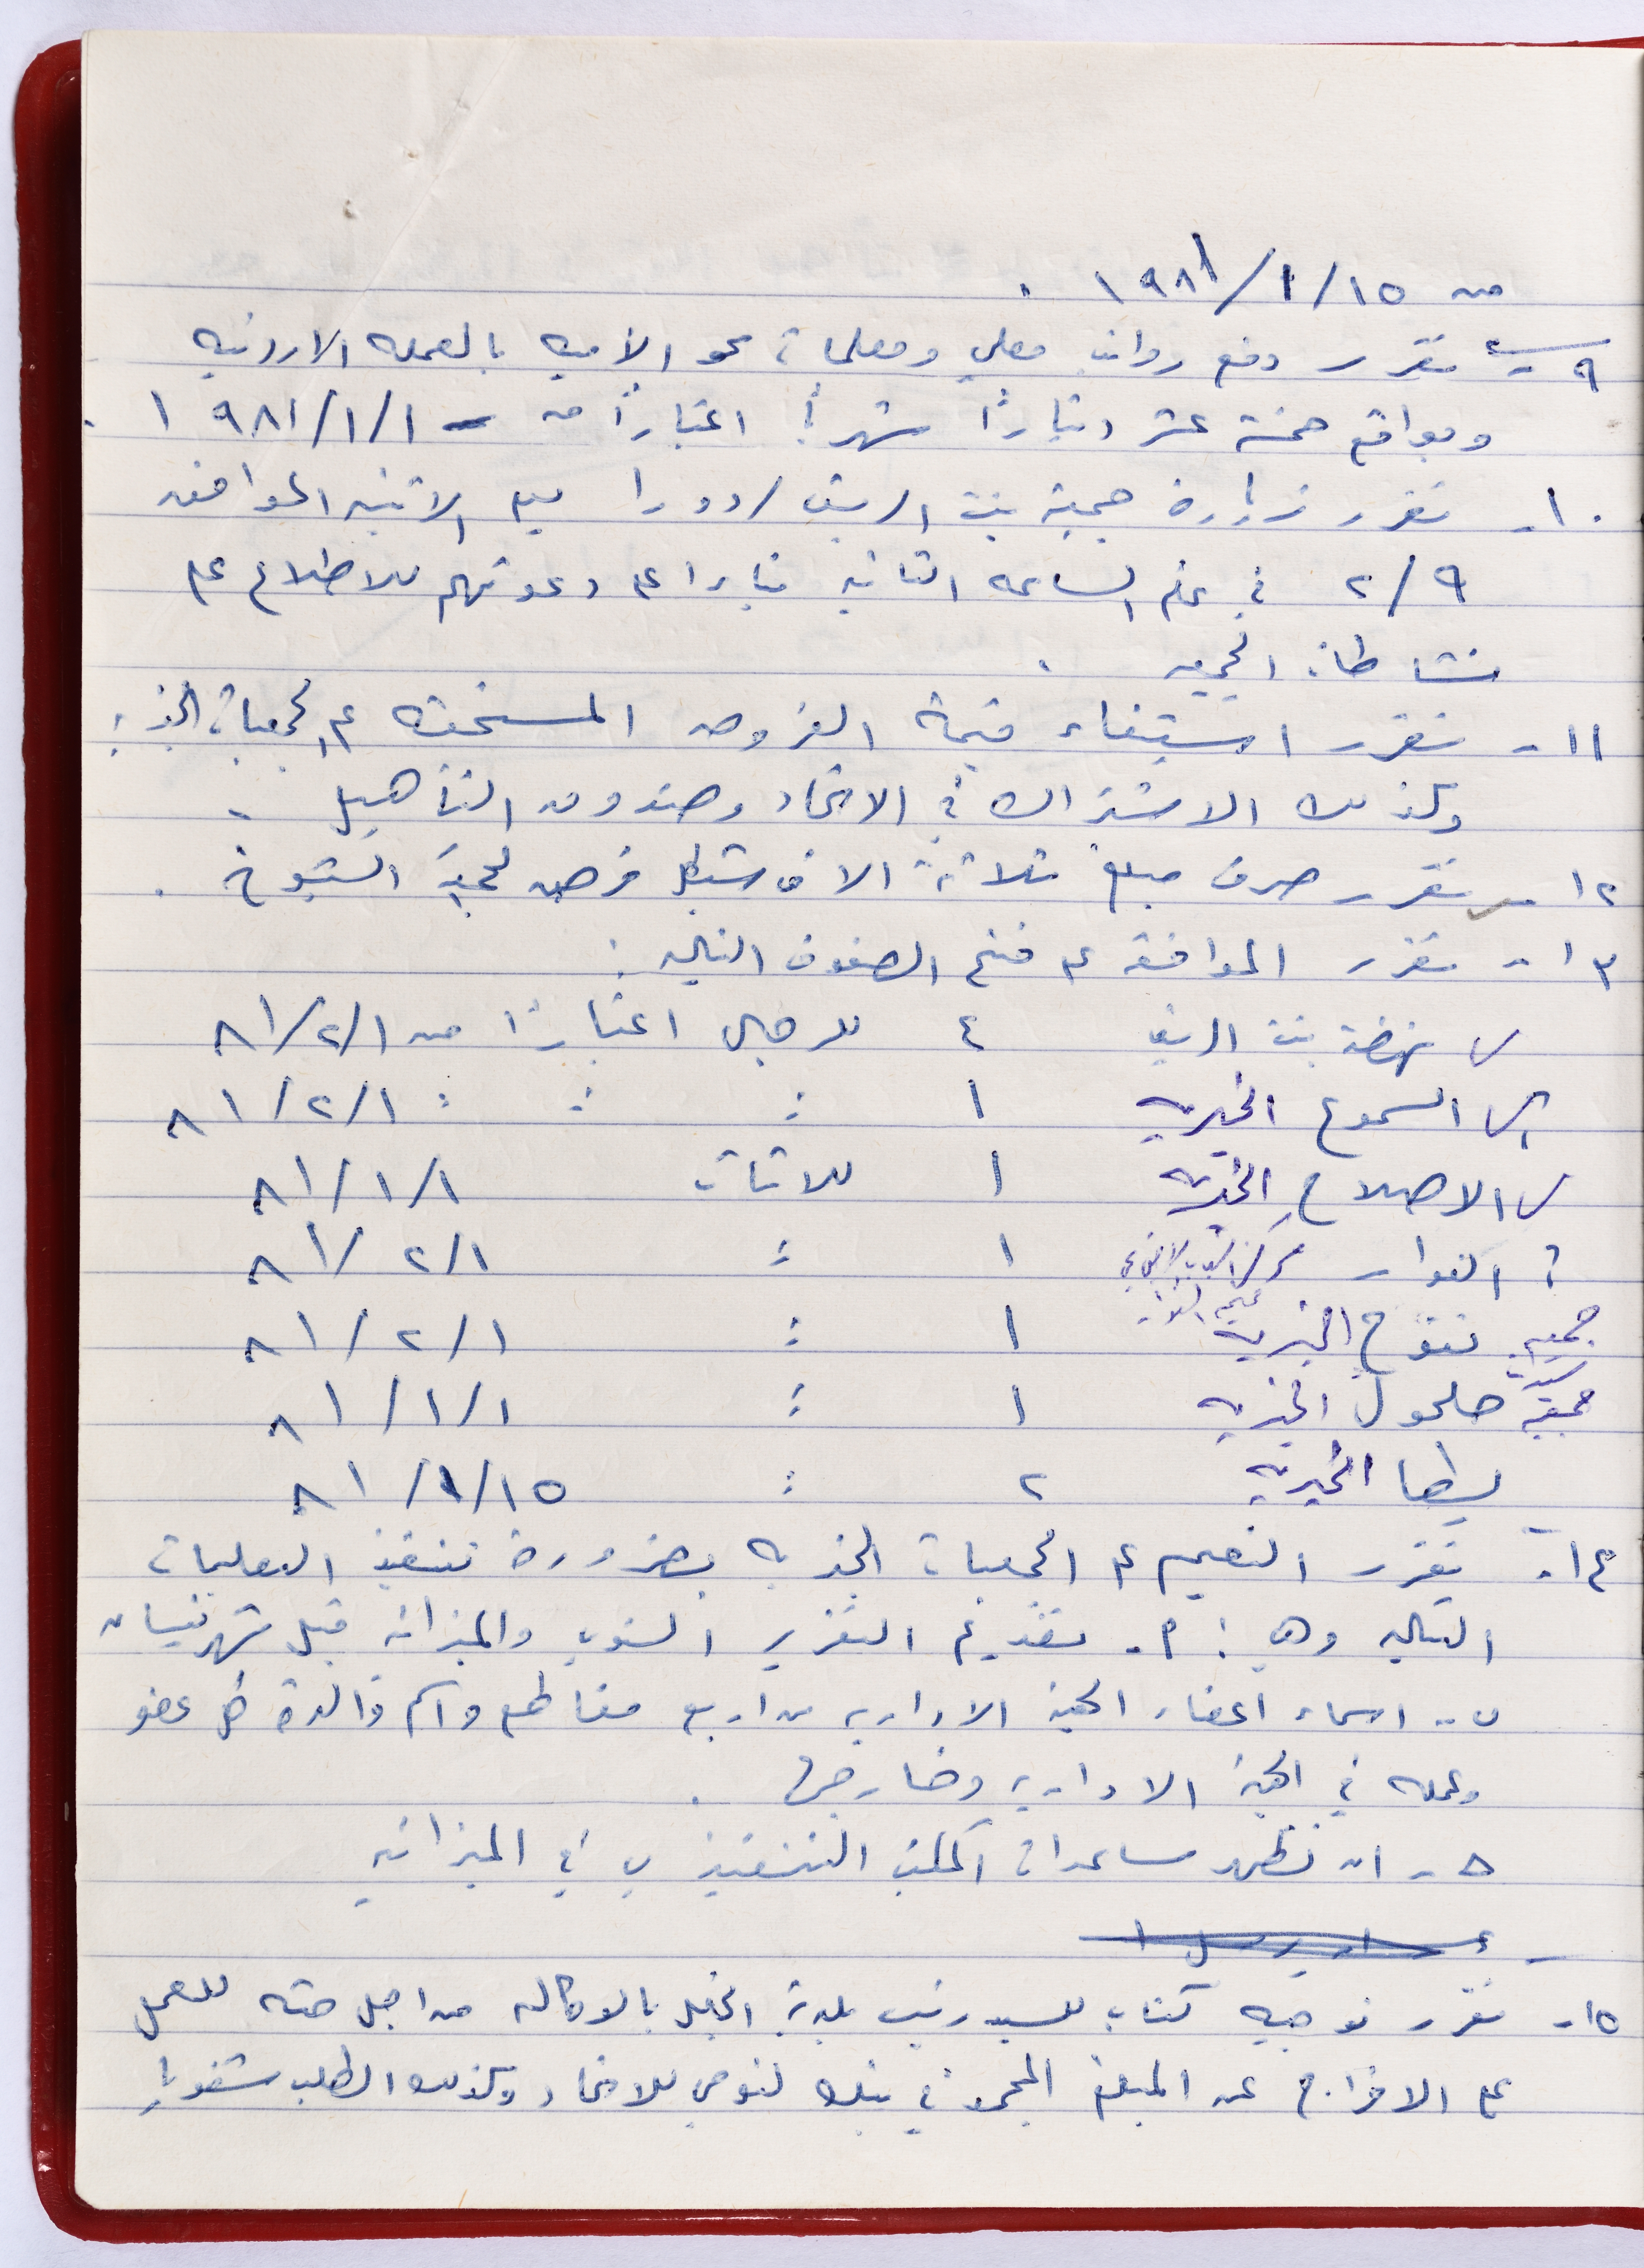 من ١٥/١/١٩٨١ .
٩ - تقرر دفع رواتب معلمي ومعلمات محو الأميه بالعمله الاردنيه
وبواقع خمسة عشر ديناراً شهرياً اعتباراً من ١/١/١٩٨١ .
١٠- تقرر زيارة جمعية بنت الريف / دورا يوم الاثنين الموافق
٢/٩ في تمام الساعه الثانيه بناءا على دعوتهم للاطلاع على
نشاطات الجمعيه .
١١ - تقرر استيفاء قيمة القروض المستحقه على الجمعيات الخيريه
وكذلك الاشتراك في الاتحاد وصندوق التأهيل .
١٢ - تقرر صرف مبلغ ثلاثة الاف شيكل قرض لجمعية الشيوخ .
١٣ - تقرر الموافقه على فتح الصفوف التاليه :
نهضة بنت الريف ٤ للرجال اعتباراً من ٨١/٢/١
السموع الخيريه ١ : : : ٨١/٢/١
الاصلاح الخيريه ١ للاناث ٨١/١/١
؟ الفوار مركز الشباب الاجتماعي مخيم الفوار ١ : ٨١/٢/١
جمعية تفوح الخيريه ١ : ٨١/٢/١
جمعية سيدات حلحول الخيريه ١ : ٨١/١/١
يطا الخيريه ٢ : ٨١/١/١٥
١٤- تقرر التعميم على الجمعيات الخيريه بضرورة تنفيذ التعليمات
التاليه وهي : أ- تقديم التقرير السنوي والميزانيه قبل شهر نيسان
ب- اسماء اعضاء الهيئة الاداريه من اربع مقاطع واسم والدة كل عضو
وعمله في الهيئة الاداريه وخارجها .
ج - ان تظهر مساعدات المكتب التنفيذي في الميزانيه
١٥- تقرر توجيه كتاب للسيد رئيس بلدية الخليل بالوكاله من اجل حثه للعمل
على الافراج عن المبلغ المجمد في بنك لئومي للاتحاد وكذلك الطلب شفويا